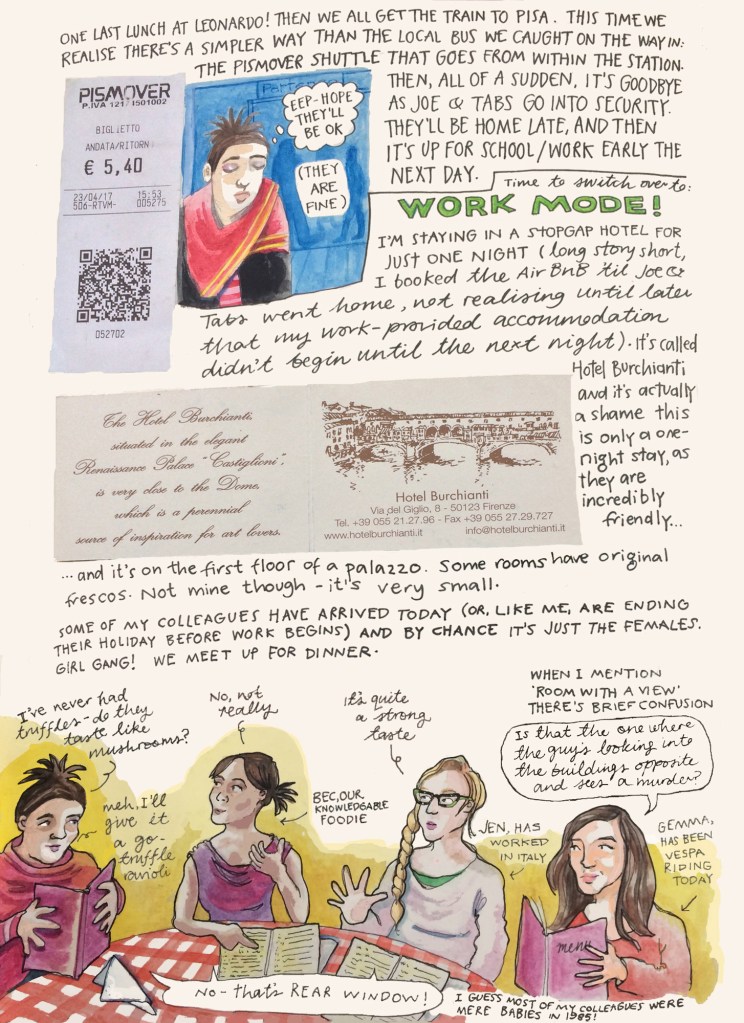 ONE LAST LUNCH AT LEONARDO! THEN WE ALL GET THE TRAIN TO PISA. THIS TIME WE
REALISE THERE'S A SIMPLER WAY THAN THE LOCAL BUS WE CAUGHT ON THE WAY IN:
THE PISMOVER SHUTTLE THAT GOES FROM WITHIN THE STATION.
PISMOVER
P.IVA 12171501002
BIGLIETTO
ANDATA/RITORN
€ 5,40
23/04/17 15:53
506-RTVM- 005275
052702
EEP-HOPE
THEY'LL
BE OK
(THEY
ARE
FINE)
THEN, ALL OF A SUDDEN, IT'S GOODBYE
AS JOE & TABS GO INTO SECURITY.
THEY'LL BE HOME LATE, AND THEN
IT'S UP FOR SCHOOL/WORK EARLY THE
NEXT DAY.
Time to switch over to:
WORK MODE!
I'M STAYING IN A STOPGAP HOTEL FOR
JUST ONE NIGHT (long story short,
I booked the Air BnB 'til Joe &
Tabs went home, not realising until later
that my work-provided accommodation
didn't begin until the next night). It's called
Hotel Burchianti
and it's actually
a shame this
is only a one-
night stay, as
they are
incredibly
friendly...
The Hotel Burchianti,
situated in the elegant
Renaissance Palace "Castiglioni",
is very close to the Dome,
which is a perennial
source of inspiration for art lovers.
Hotel Burchianti
Via del Giglio, 8 - 50123 Firenze
Tel. +39 055 21.27.96 - Fax +39 055 27.29.727
www.hotelburchianti.it info@hotelburchianti.it
...and it's on the first floor of a palazzo. Some rooms have original
frescos. Not mine though - it's very small.
SOME OF MY COLLEAGUES HAVE ARRIVED TODAY (OR, LIKE ME, ARE ENDING
THEIR HOLIDAY BEFORE WORK BEGINS) AND BY CHANCE IT'S JUST THE FEMALES.
GIRL GANG! WE MEET UP FOR DINNER.
I've never had
truffles - do they
taste like
mushrooms?
meh, I'll
give it
a go-
truffle
ravioli
No, not
really
BEC, OUR
KNOWLEDGABLE
FOODIE
it's quite
a strong
taste
JEN, HAS
WORKED
IN ITALY
WHEN I MENTION
'ROOM WITH A VIEW'
THERE'S BRIEF CONFUSION
Is that the one where
the guy's looking into
the buildings opposite
and sees a murder?
GEMMA,
HAS BEEN
VESPA
RIDING
TODAY
menu
NO - that's REAR WINDOW!
I GUESS MOST OF MY COLLEAGUES WERE
MERE BABIES IN 1985!